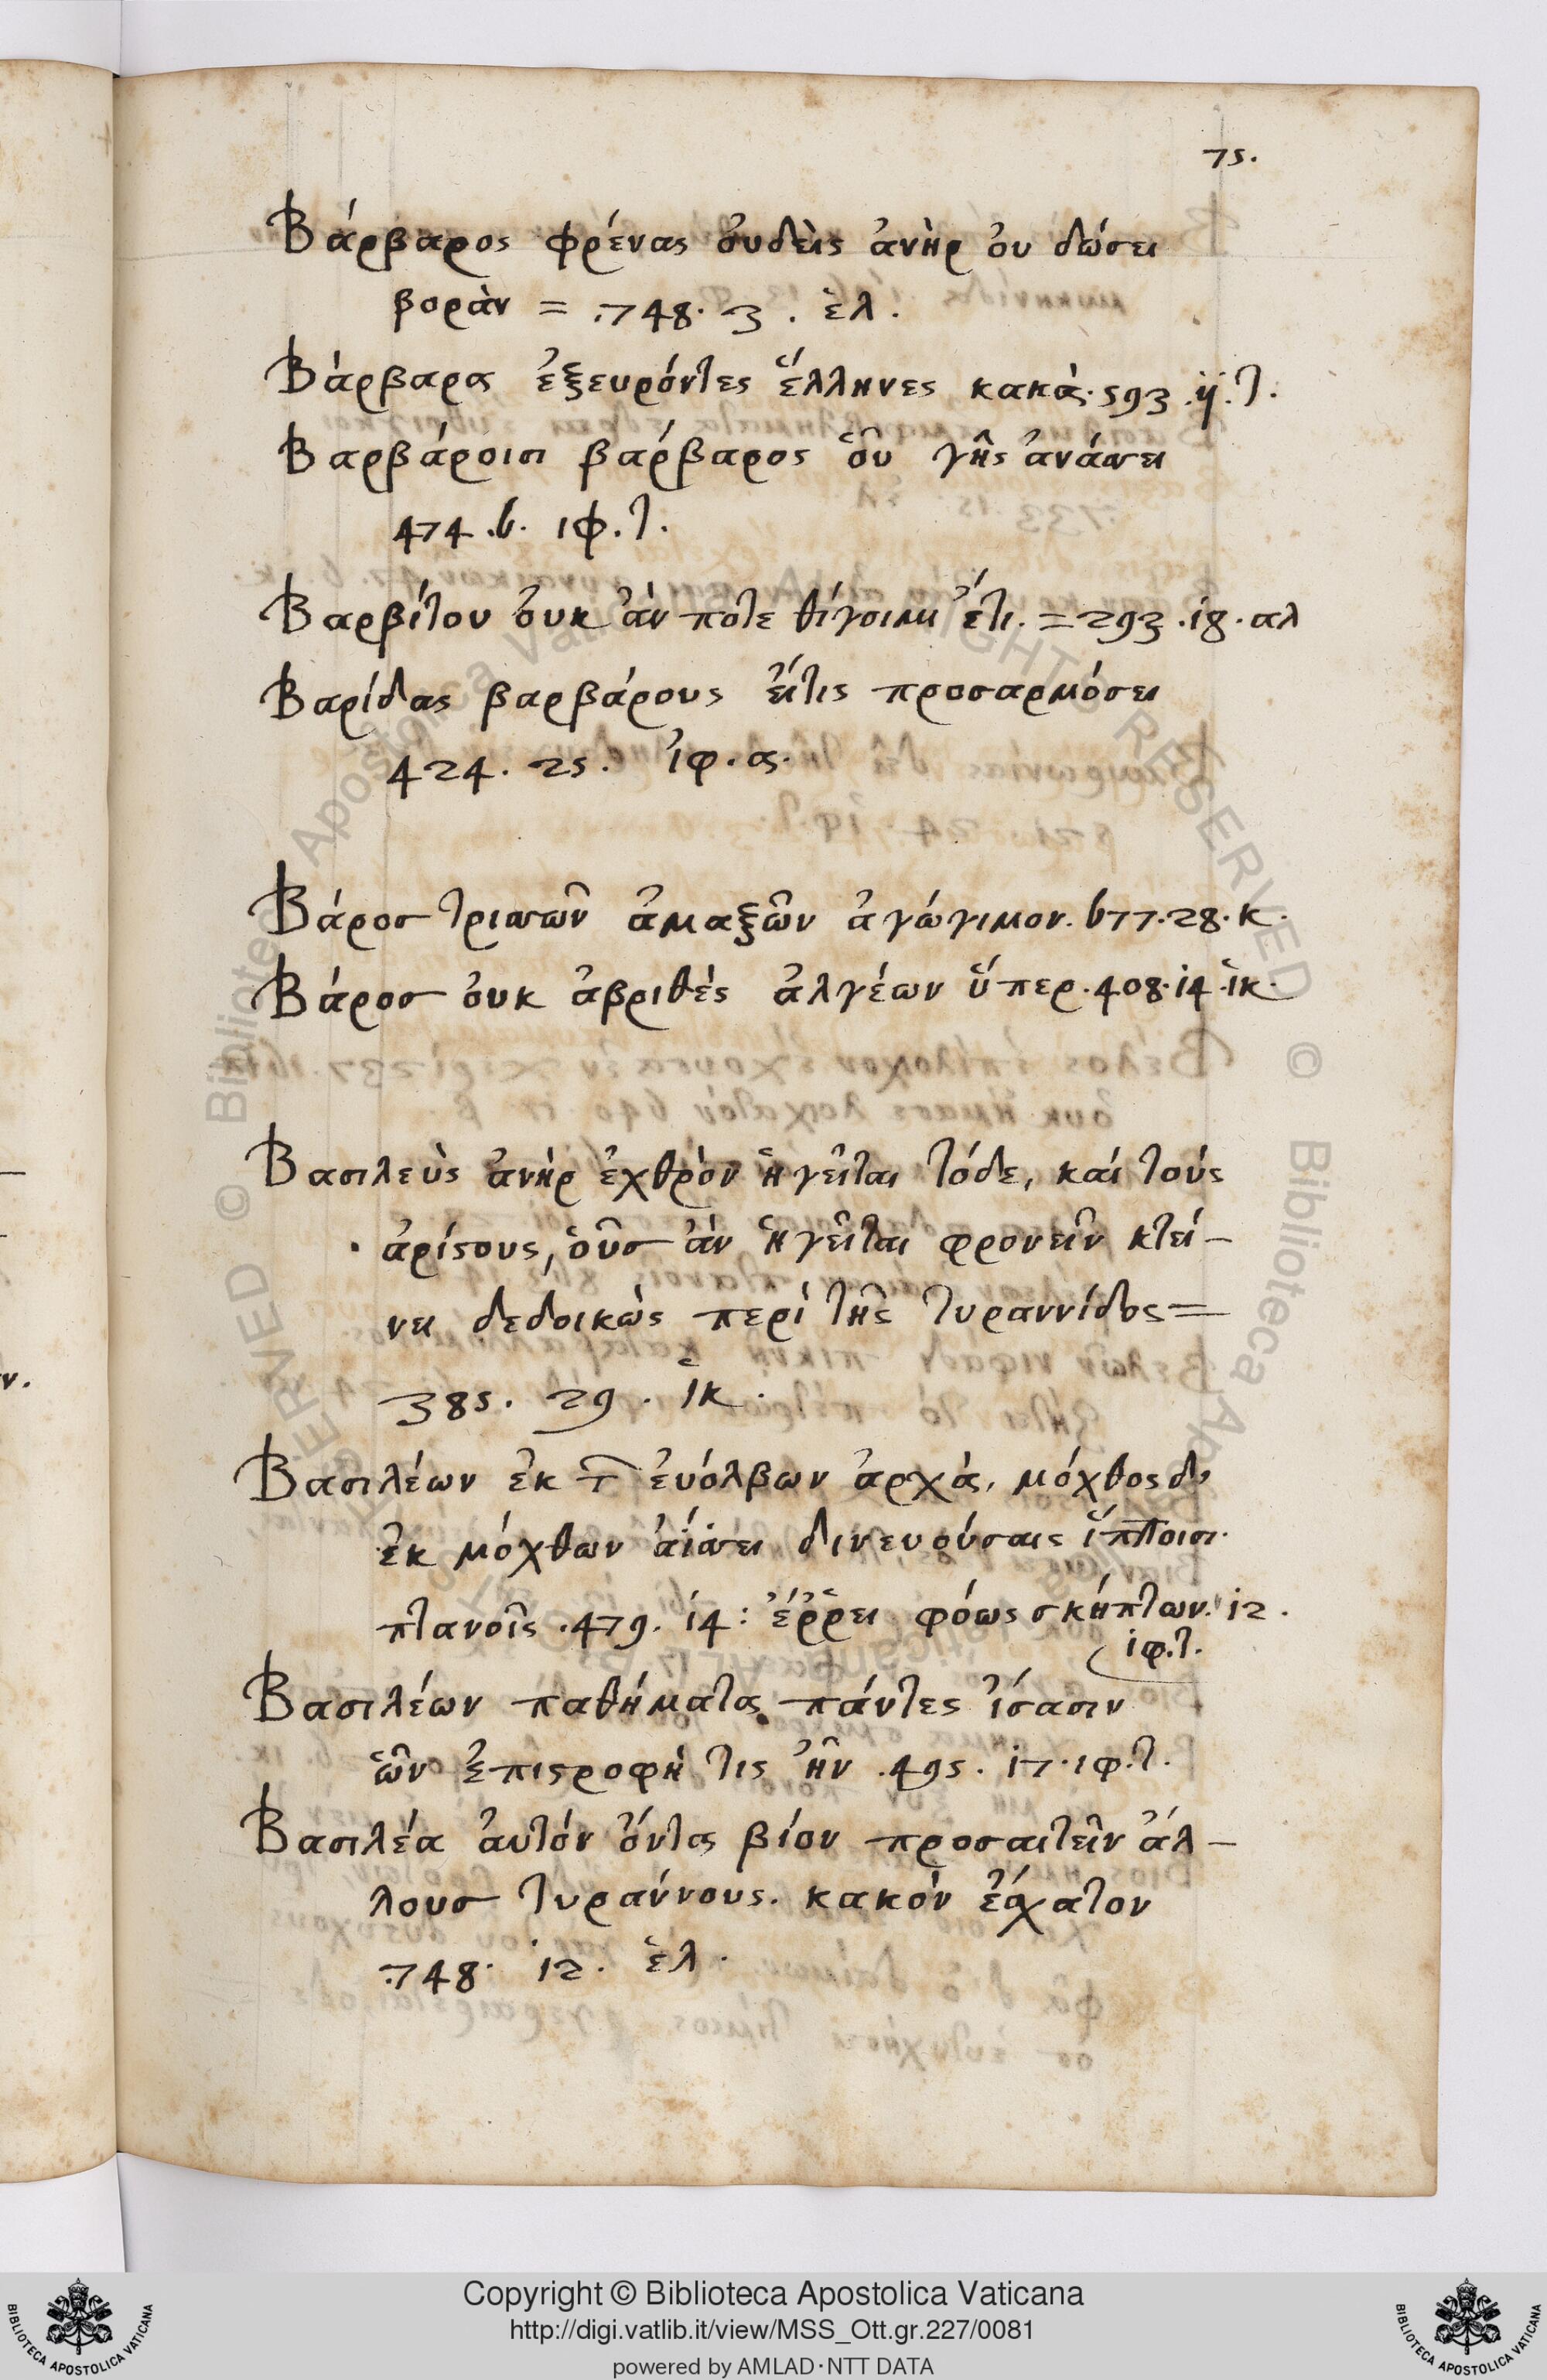 75.
Βάρβαρος φρένας ὀυδὲις ἀνὴρ ὀυ δώσει
βορὰν = .748. 3. ἑλ.
Βάρβαρα ἐξευρόντες ἕλληνες κακά. 593. ij. τ.
Βαρβάροισι βάρβαρος ὁῦ γῆς ἀνάσσει
474. 6. ιφ. τ.
Βαρβίτου ὀυκ ἂν ποτε θίγοιμι ἔτι. = 293. i8. αλ
Βαρίδας βαρβάρους ἔιτις προσαρμόσει
424. 25. ἰφ. α.
Βάροσ τρισσῶν ἁμαξῶν ἀγώγιμον. 677. 28. κ.
Βάροσ ὀυκ ἀβριθὲς ἀλγέων ὕπερ. 408. i4. ἱκ.
Βασιλεὺς ἀνὴρ ἐχθρὸν ἡγεῖται τόδε, καί τούς
ἀρίςους, ὁῦσ ἂν ἡγεῖται φρονεῖν κτεί-
νει δεδοικὼς περί τῆς τυραννίδος =
385. 29. ἱκ.
Βασιλέων ἐκ τ῀ ἐυόλβων ἀρχά, μόχθος δ'
ἐκ μόχθων ἀίσσει δινευούσαις ἵπποισι
πτανοῖς. 479. i4: ἔῤῥει φόως σκήπτων. i2.
ιφ. τ.
Βασιλέων παθήματα πάντες ἴσασιν
ὧν ἐπιςροφή τις ἦν. 495. i7. ιφ. τ.
Βασιλέα ἀυτόν ὄντα βίον προσαιτεῖν ἄλ-
λουσ τυράννους. κακὸν ἔσχατον
.748. i2. ἑλ.
Copyright © Biblioteca Apostolica Vaticana
http://digi.vatlib.it/view/MSS_Ott.gr.227/0081
powered by AMLAD·NTT DATA